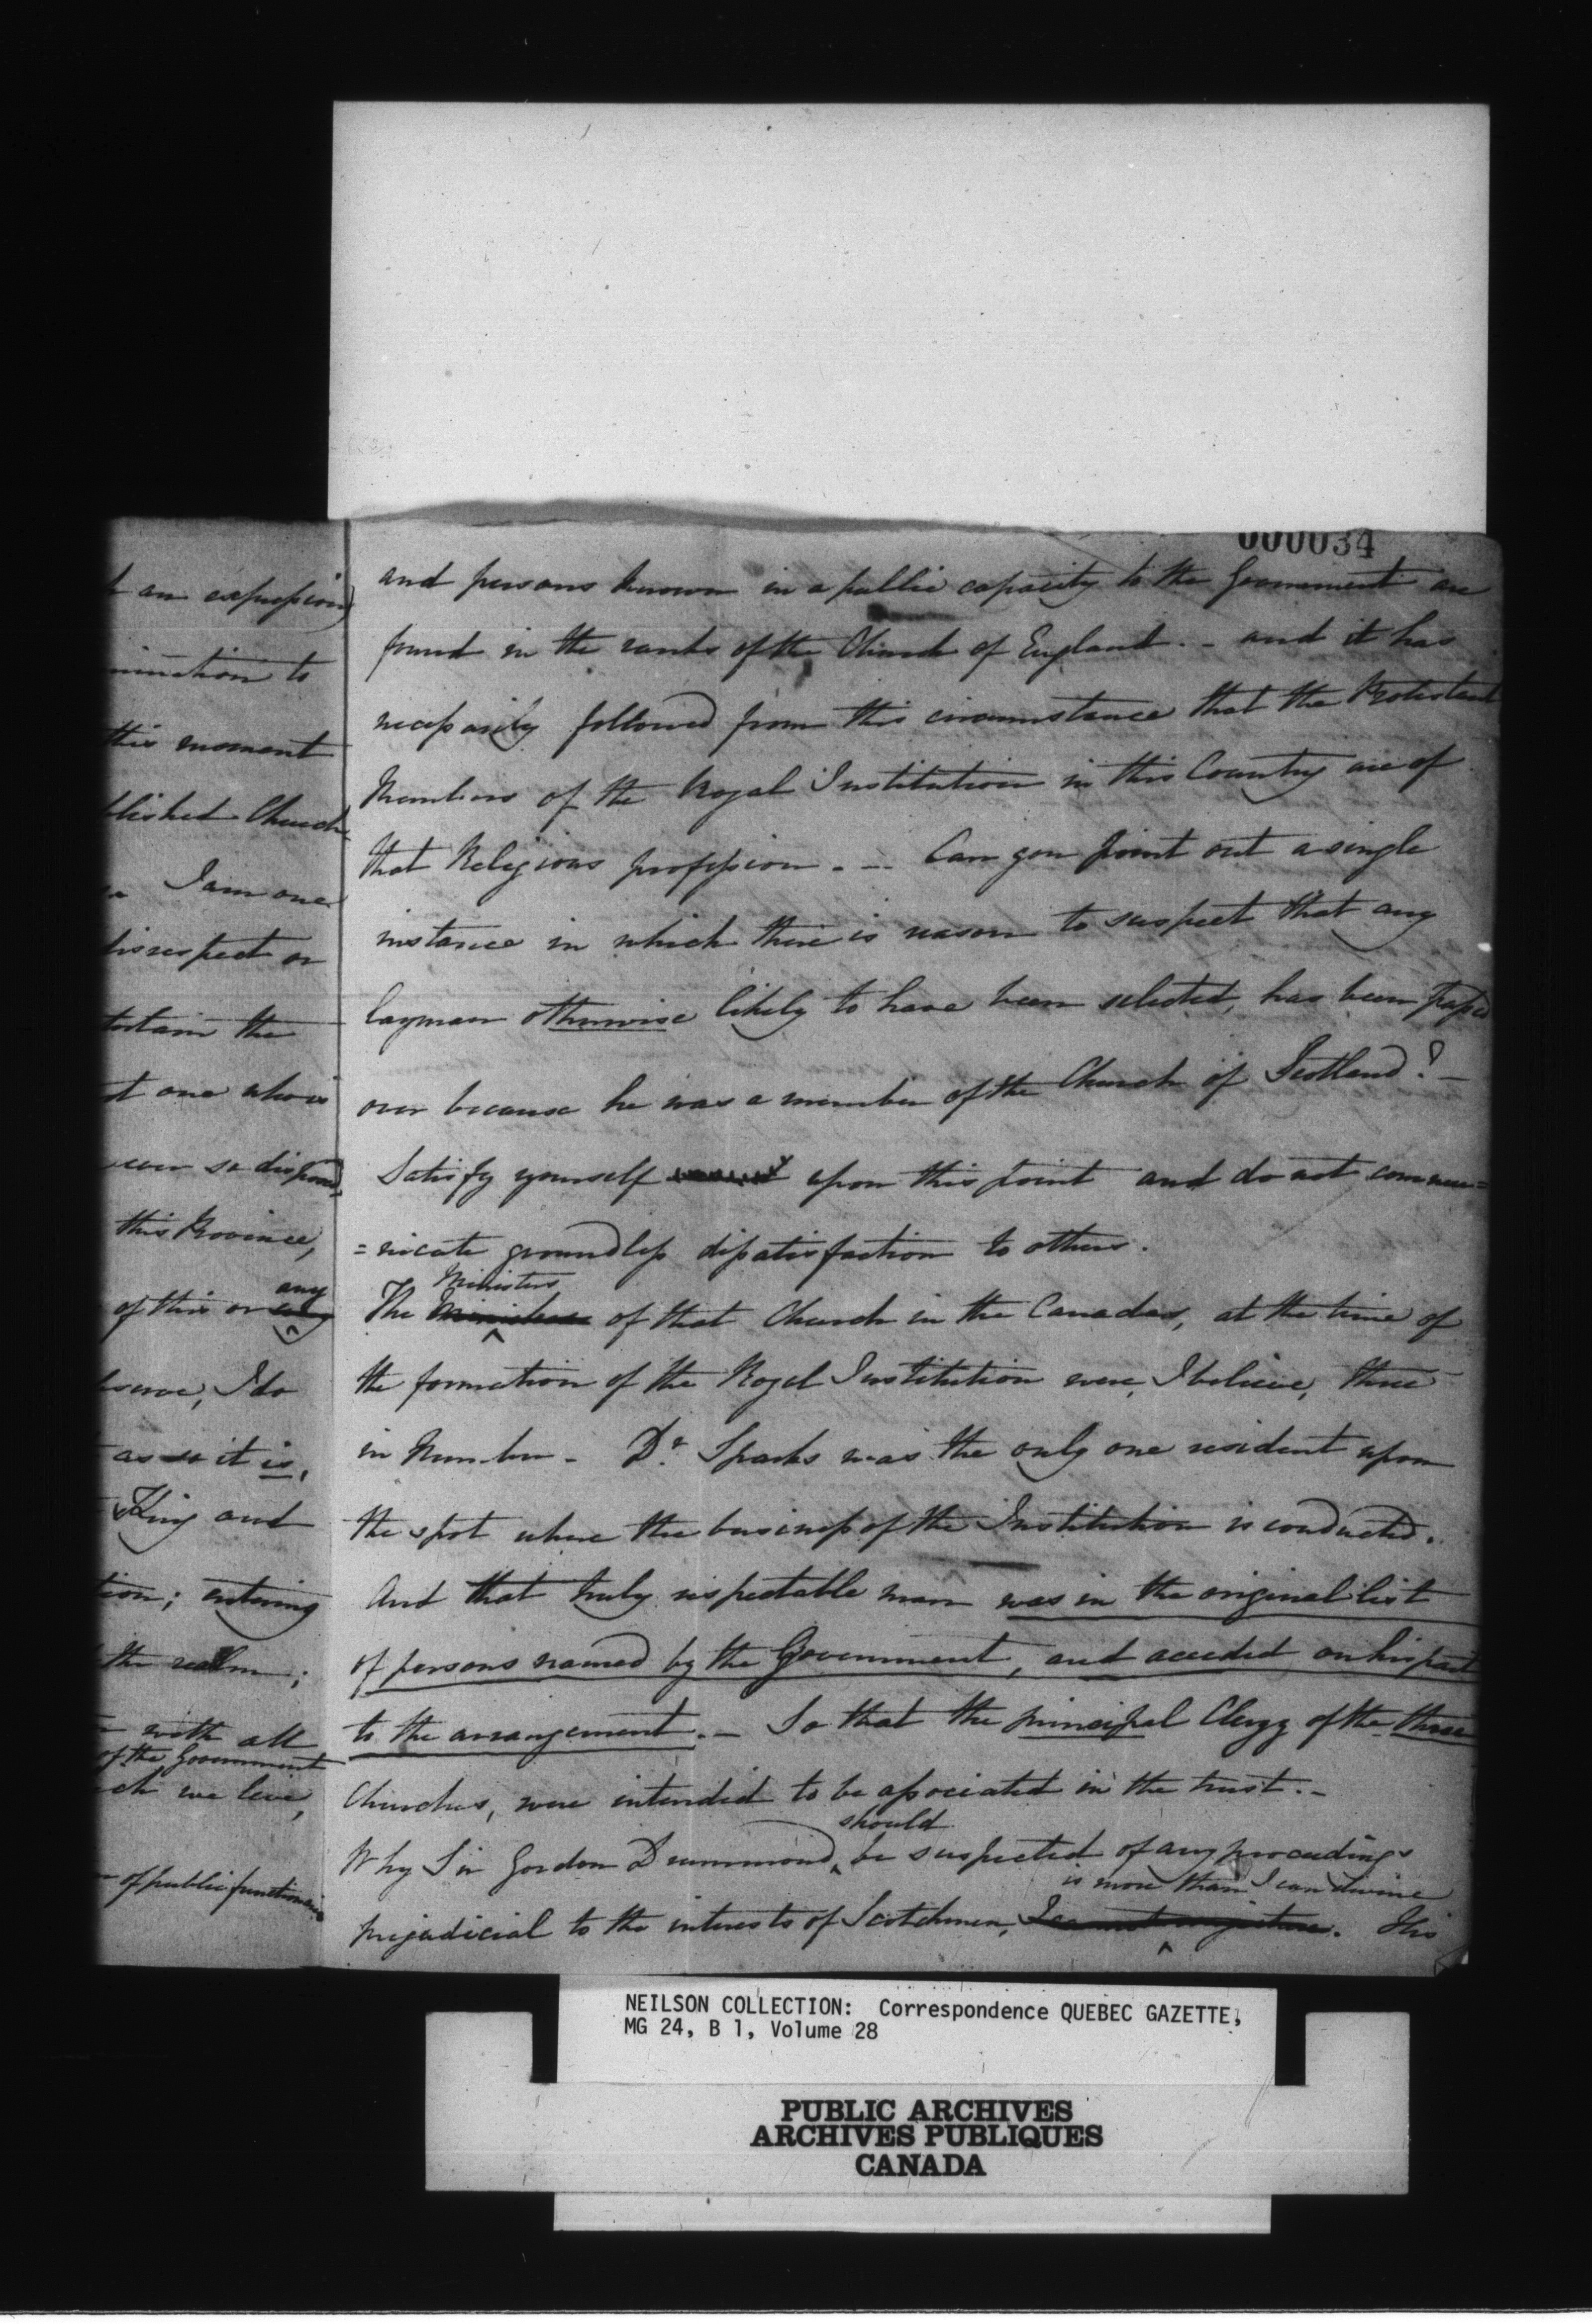 000034
t an expression)
mination to
this moment
blished Church,
I am one
disrespect or
tertain the
t one who is
ever so disposed,
this Province,
any
of this or
I do
as so it is,
King and
tion; entering
the realm;
with all
of the Government
ch we live,
of public functionaries
and persons known in a public capacity to the Government are
found in the ranks of the Church of England. - and it has
necessarily followed from this circumstance that the Protestant
Members of the Royal Institution in this Country are of
that Religious profession. - - Can you point out a single
instance in which there is reason to suspect that any
layman otherwise likely to have been selected, has been passed
over because he was a member of the Church of Scotland? -
Satisfy yourself upon this point and do not commu=
=nicate groundless dissatisfaction to others.
Ministers
The of that Church in the Canadas, at the time of
the formation of the Royal Institution were, I believe, three
in Number - Dr. Sparks was the only one resident upon
the spot where the business of the Institution is conducted.
And that truly respectable man was in the original list
of persons named by the Government, and acceded on his part
to the arrangement. - So that the principal Clergy of the three
Churches, were intended to be associated in the trust. -
should
Why Sir Gordon Drummond, be suspected of any proceedings
is more than I can divine
prejudicial to the interests of Scotchmen, I cannot conjecture. His
NEILSON COLLECTION: Correspondence QUEBEC GAZETTE,
MG 24, B 1, Volume 28
PUBLIC ARCHIVES
ARCHIVES PUBLIQUES
CANADA